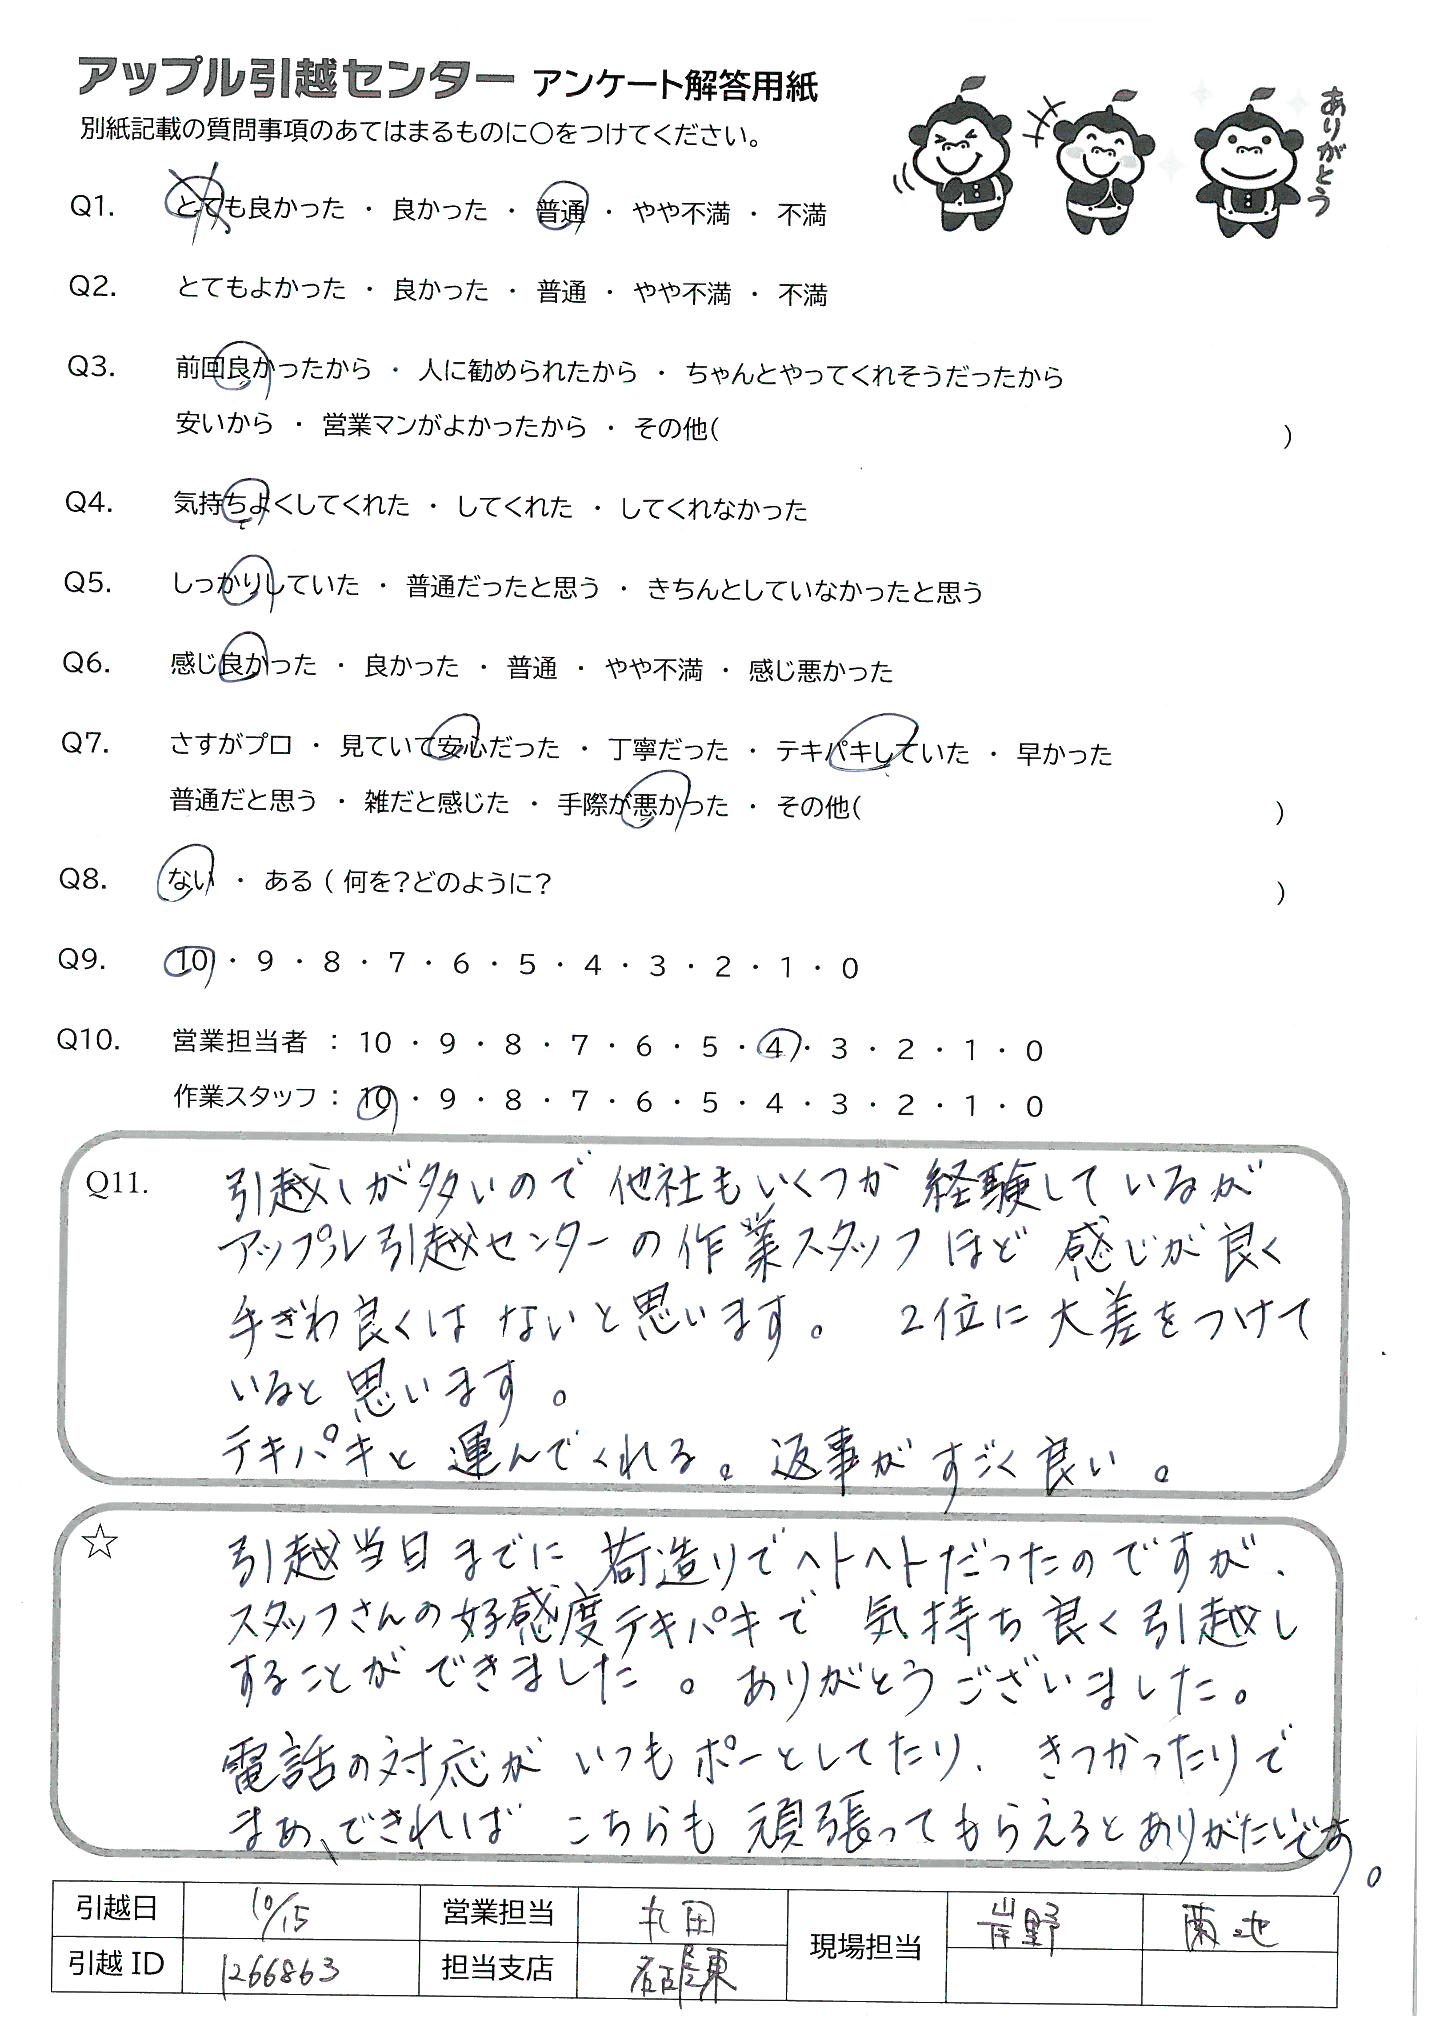 アップル引越センター アンケート解答用紙
別紙記載の質問事項のあてはまるものに○をつけてください。
ありがとう
Q1. とても良かった ・ 良かった ・ 普通 ・ やや不満 ・ 不満
Q2. とてもよかった ・ 良かった ・ 普通 ・ やや不満 ・ 不満
Q3. 前回良かったから ・ 人に勧められたから ・ ちゃんとやってくれそうだったから
安いから ・ 営業マンがよかったから ・ その他( )
Q4. 気持ちよくしてくれた ・ してくれた ・ してくれなかった
Q5. しっかりしていた ・ 普通だったと思う ・ きちんとしていなかったと思う
Q6. 感じ良かった ・ 良かった ・ 普通 ・ やや不満 ・ 感じ悪かった
Q7. さすがプロ ・ 見ていて安心だった ・ 丁寧だった ・ テキパキしていた ・ 早かった
普通だと思う ・ 雑だと感じた ・ 手際が悪かった ・ その他( )
Q8. ない ・ ある ( 何を?どのように? )
Q9. 10 ・ 9 ・ 8 ・ 7 ・ 6 ・ 5 ・ 4 ・ 3 ・ 2 ・ 1 ・ 0
Q10. 営業担当者 : 10 ・ 9 ・ 8 ・ 7 ・ 6 ・ 5 ・ 4 ・ 3 ・ 2 ・ 1 ・ 0
作業スタッフ : 10 ・ 9 ・ 8 ・ 7 ・ 6 ・ 5 ・ 4 ・ 3 ・ 2 ・ 1 ・ 0
Q11. 引越しが多いので他社もいくつか経験しているが
アップル引越センターの作業スタッフほど感じが良く
手ぎわ良くはないと思います。 2位に大差をつけて
いると思います。
テキパキと運んでくれる。返事がすごく良い。
☆ 引越当日までに荷造りでヘトヘトだったのですが、
スタッフさんの好感度テキパキで気持ち良く引越し
することができました。ありがとうございました。
電話の対応がいつもボーとしてたり、きつかったりで
まあ、できればこちらも頑張ってもらえるとありがたいです。
引越日 10/15 営業担当 丸田 現場担当 岸野 菊地
引越 ID 1266863 担当支店 名古屋東